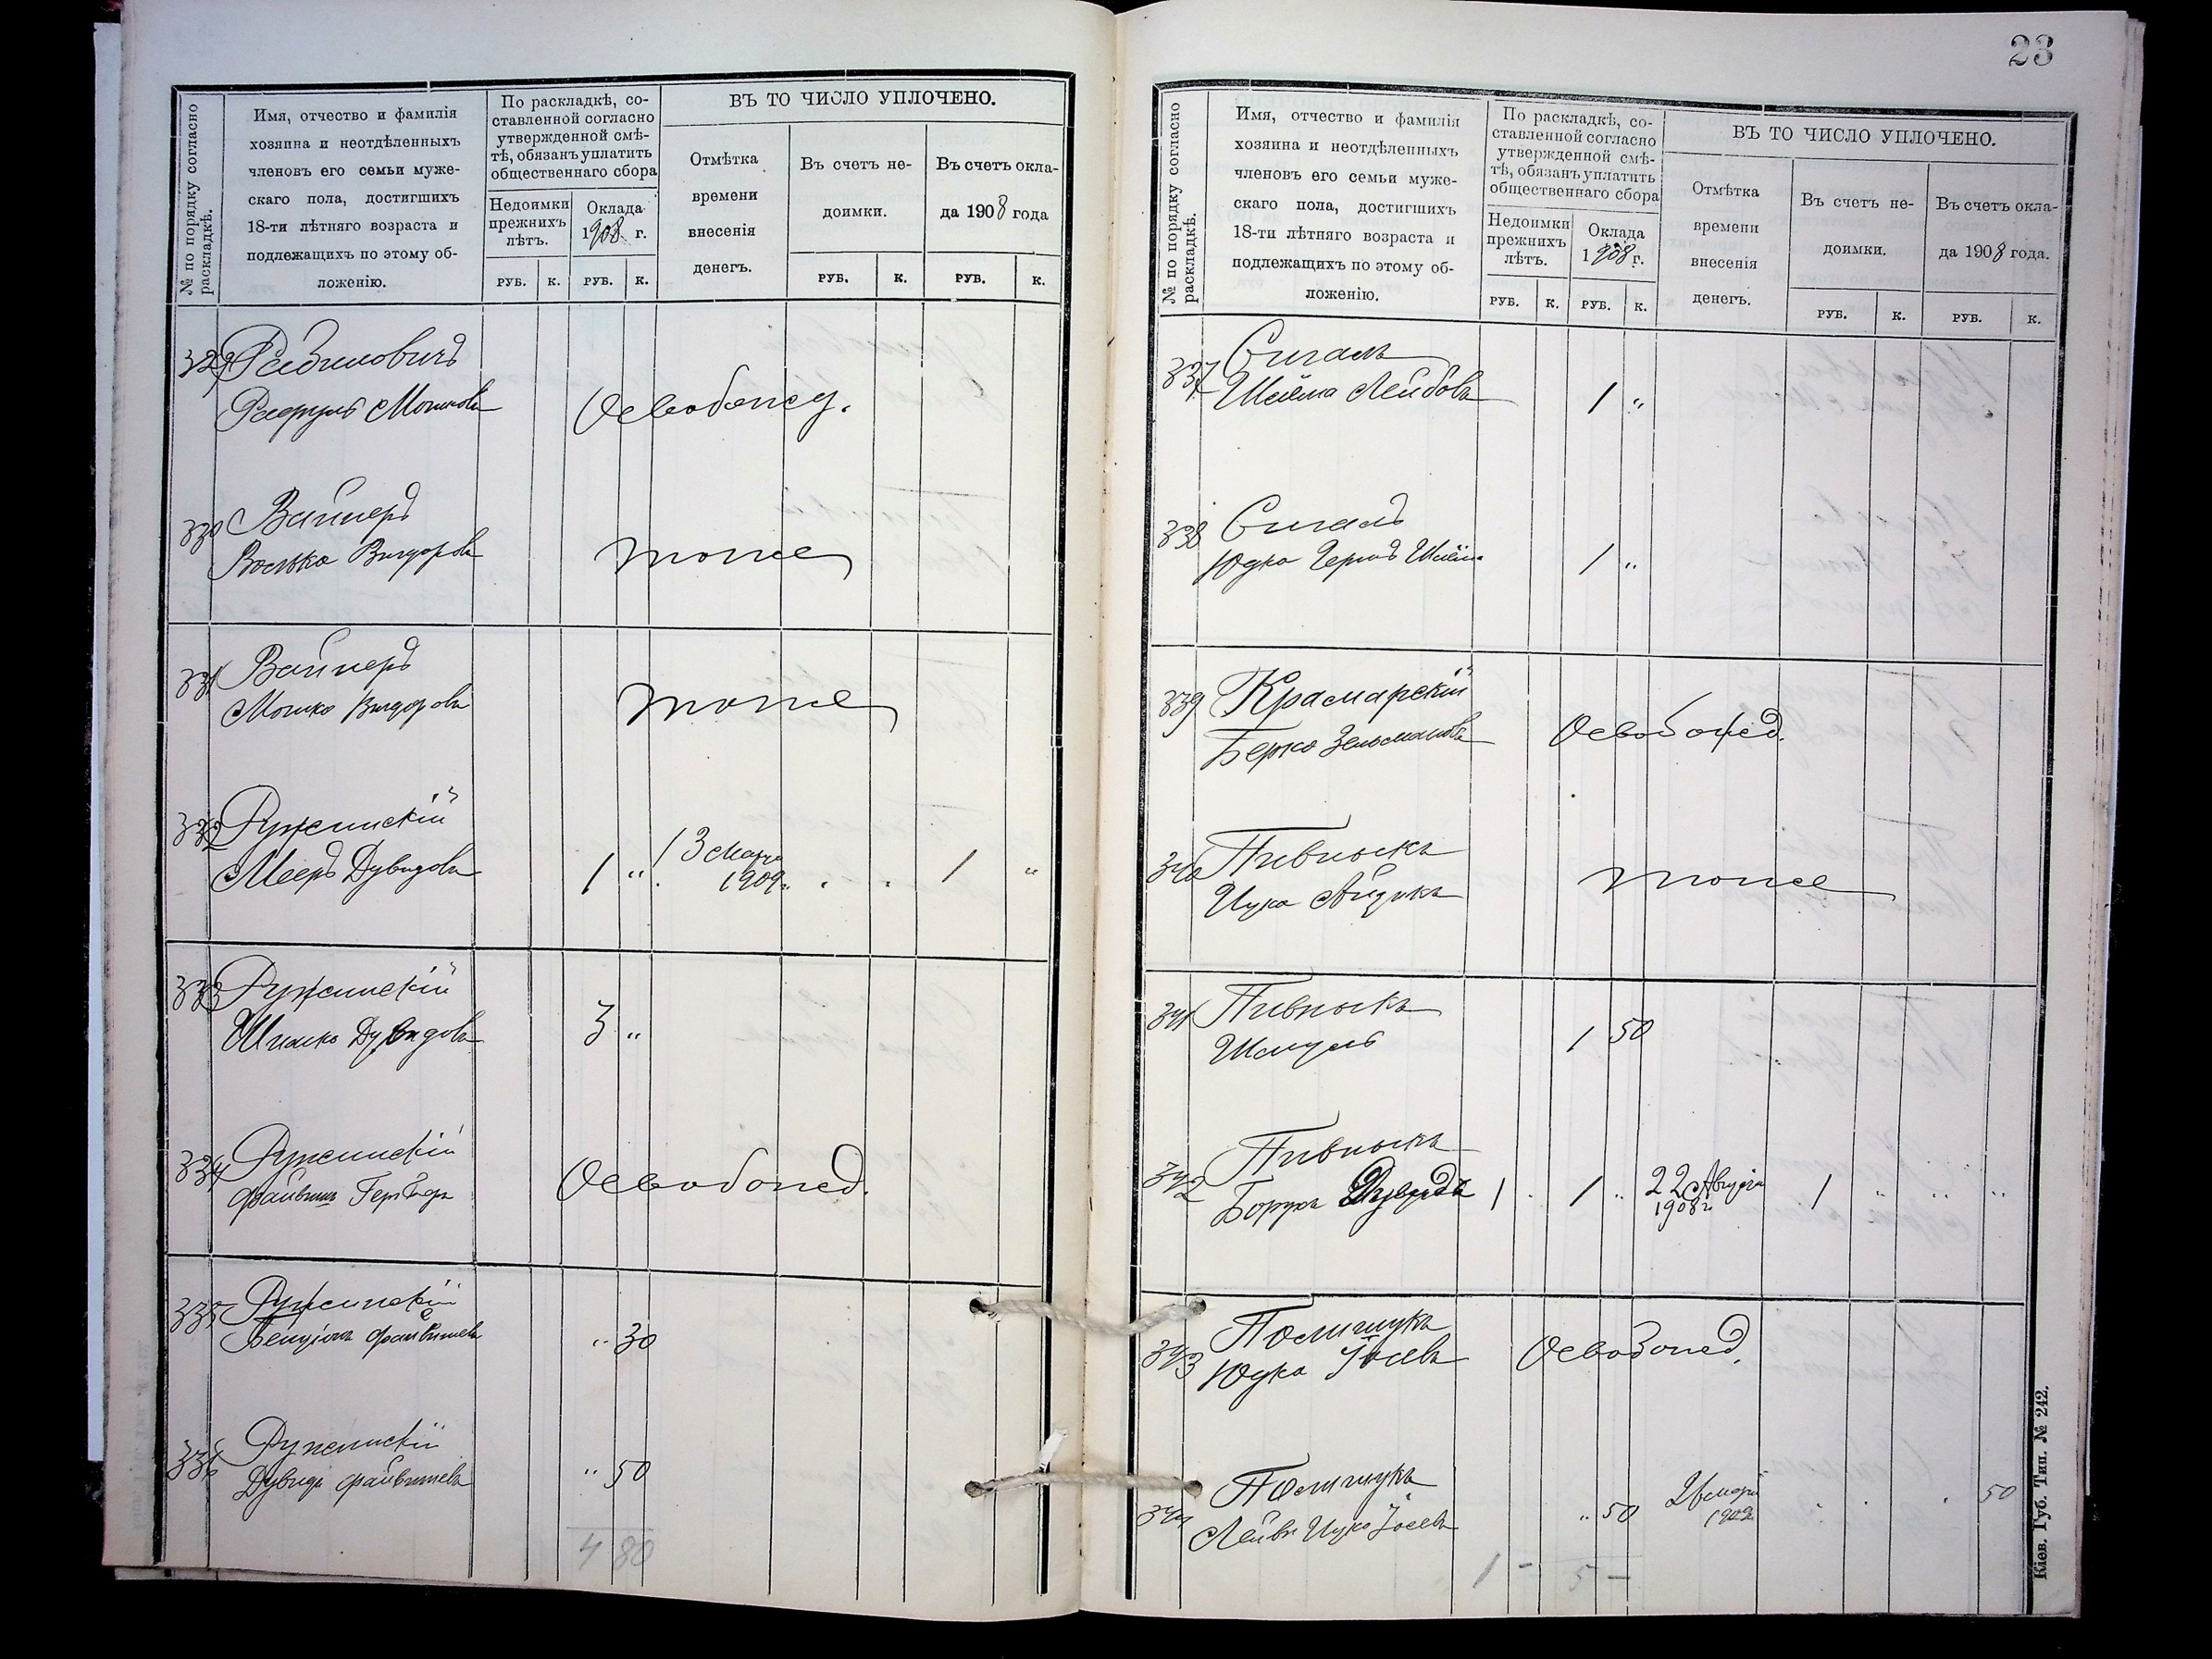 № по порядку согласно
раскладкѣ.
Имя, отчество и фамилія
хозяина и неотдѣленныхъ
членовъ его семьи муже-
скаго пола, достигшихъ
18-ти лѣтняго возраста и
подлежащихъ по этому об-
ложенію.
По раскладкѣ, со-
ставленной согласно
утвержденной смѣ-
тѣ, обязанъ уплатить
общественнаго сбора
Недоимки
прежнихъ
лѣтъ.
Оклада
1908 г.
РУБ. К. РУБ. К.
ВЪ ТО ЧИСЛО УПЛОЧЕНО.
Отмѣтка
времени
внесенія
денегъ.
Въ счетъ не-
доимки.
Въ счетъ окла-
да 1908 года
РУБ. К. РУБ. К.
329 Рабиновичъ
Рафуль Мошковъ Освобожд.
330 Вайнеръ
Волько Вигдоровъ тоже
331 Вайнеръ
Мошко Вигдоровъ тоже
332 Ружинскій
Мееръ Дувидовъ 1 " 13 Марта 1909 г. 1 "
333 Ружинскій
Шимко Дувидовъ 3 "
334 Ружинскій
Файвишъ Освобожд.
335 Ружинскій
Бенціонъ Файвишевъ " 30
336 Ружинскій
Дувидъ Файвишевъ " 50
4 80
23
№ по порядку согласно
раскладкѣ.
Имя, отчество и фамилія
хозяина и неотдѣленныхъ
членовъ его семьи муже-
скаго пола, достигшихъ
18-ти лѣтняго возраста и
подлежащихъ по этому об-
ложенію.
По раскладкѣ, со-
ставленной согласно
утвержденной смѣ-
тѣ, обязанъ уплатить
общественнаго сбора
Недоимки
прежнихъ
лѣтъ.
Оклада
1908 г.
РУБ. К. РУБ. К.
ВЪ ТО ЧИСЛО УПЛОЧЕНО.
Отмѣтка
времени
внесенія
денегъ.
Въ счетъ не-
доимки.
Въ счетъ окла-
да 1908 года.
РУБ. К. РУБ. К.
337 Сигалъ
Шлёма Лейбовъ 1 "
338 Сигалъ
Юдко Гершъ Шлём. 1 "
339 Крамарскій
Берко Зельмановъ Освобожд.
340 Пивныкъ
Ицко тоже
341 Пивныкъ
Шмуль 1 50
342 Пивныкъ
Борухъ Дувидъ 1 1 " 22 Августа 1908 г. 1 " " "
343 Полищукъ
Юдко Іосевъ Освобожд.
344 Полищукъ
Лейбъ Ицко Іосевъ " 50 50
1 - 5 -
Кіев. Губ. Тип. № 242.